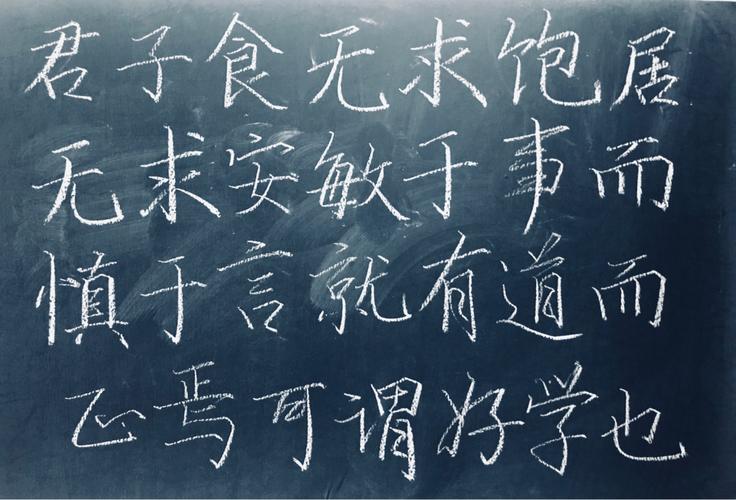 君子食无求饱居
无求安敏于事而
慎于言就有道而
正焉可谓好学也